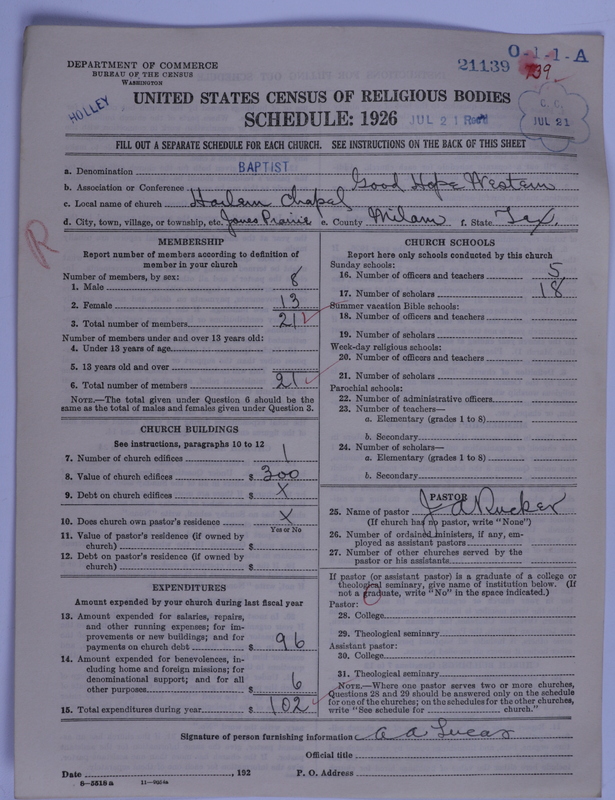 DEPARTMENT OF COMMERCE
BUREAU OF THE CENSUS
WASHINGTON
21139
O-1-1-A
739
HOLLEY
UNITED STATES CENSUS OF RELIGIOUS BODIES
SCHEDULE: 1926
JUL 21 Rec'd
JUL 21
FILL OUT A SEPARATE SCHEDULE FOR EACH CHURCH. SEE INSTRUCTIONS ON THE BACK OF THIS SHEET
a. Denomination BAPTIST
b. Association or Conference Good Hope Western
c. Local name of church Harlem Chapel
d. City, town, village, or township, etc. Jones Prairie e. County Milam f. State Tex.
R
MEMBERSHIP
Report number of members according to definition of
member in your church
Number of members, by sex:
1. Male 8
2. Female 13
3. Total number of members 21
Number of members under and over 13 years old:
4. Under 13 years of age
5. 13 years old and over
6. Total number of members 21
NOTE.—The total given under Question 6 should be the
same as the total of males and females given under Question 3.
CHURCH BUILDINGS
See instructions, paragraphs 10 to 12
7. Number of church edifices 1
8. Value of church edifices $ 300
9. Debt on church edifices $ X
10. Does church own pastor's residence X
Yes or No
11. Value of pastor's residence (if owned by
church) $
12. Debt on pastor's residence (if owned by
church) $
EXPENDITURES
Amount expended by your church during last fiscal year
13. Amount expended for salaries, repairs,
and other running expenses; for im-
provements or new buildings; and for
payments on church debt $ 96
14. Amount expended for benevolences, in-
cluding home and foreign missions; for
denominational support; and for all
other purposes $ 6
15. Total expenditures during year $ 102
CHURCH SCHOOLS
Report here only schools conducted by this church
Sunday schools:
16. Number of officers and teachers 5
17. Number of scholars 18
Summer vacation Bible schools:
18. Number of officers and teachers
19. Number of scholars
Week-day religious schools:
20. Number of officers and teachers
21. Number of scholars
Parochial schools:
22. Number of administrative officers
23. Number of teachers—
a. Elementary (grades 1 to 8)
b. Secondary
24. Number of scholars—
a. Elementary (grades 1 to 8)
b. Secondary
PASTOR
25. Name of pastor J A Rucker
(If church has no pastor, write "None")
26. Number of ordained ministers, if any, em-
ployed as assistant pastors
27. Number of other churches served by the
pastor or his assistants
If pastor (or assistant pastor) is a graduate of a college or
theological seminary, give name of institution below. (If
not a graduate, write "No" in the space indicated.)
Pastor:
28. College
29. Theological seminary
Assistant pastor:
30. College
31. Theological seminary
NOTE.—Where one pastor serves two or more churches,
Questions 28 and 29 should be answered only on the schedule
for one of the churches; on the schedules for the other churches,
write "See schedule for church."
Signature of person furnishing information a a Lucas
Official title
Date , 192 P. O. Address
8—5518a 11—9254a